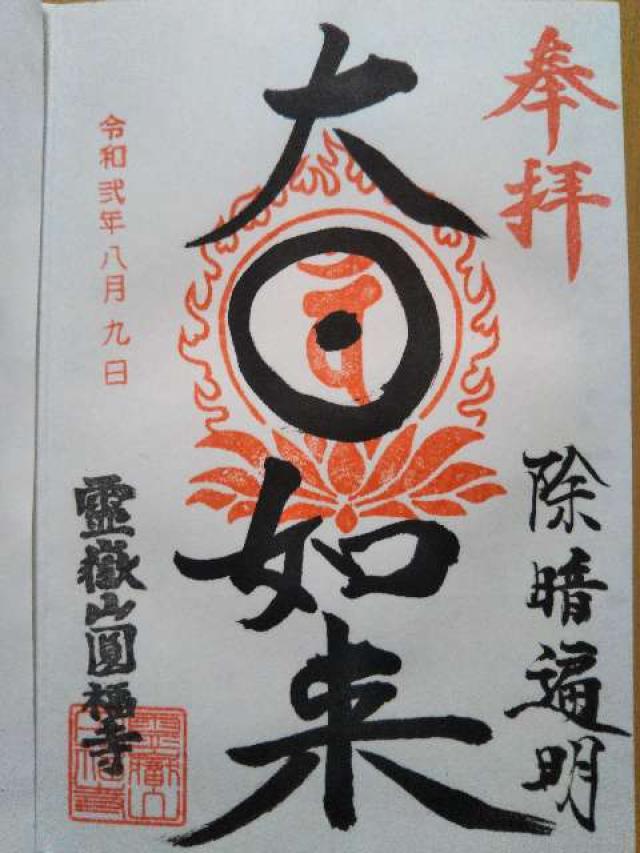 奉拝
除暗遍明
大日如来
令和弐年八月九日
靈嶽山圓福寺